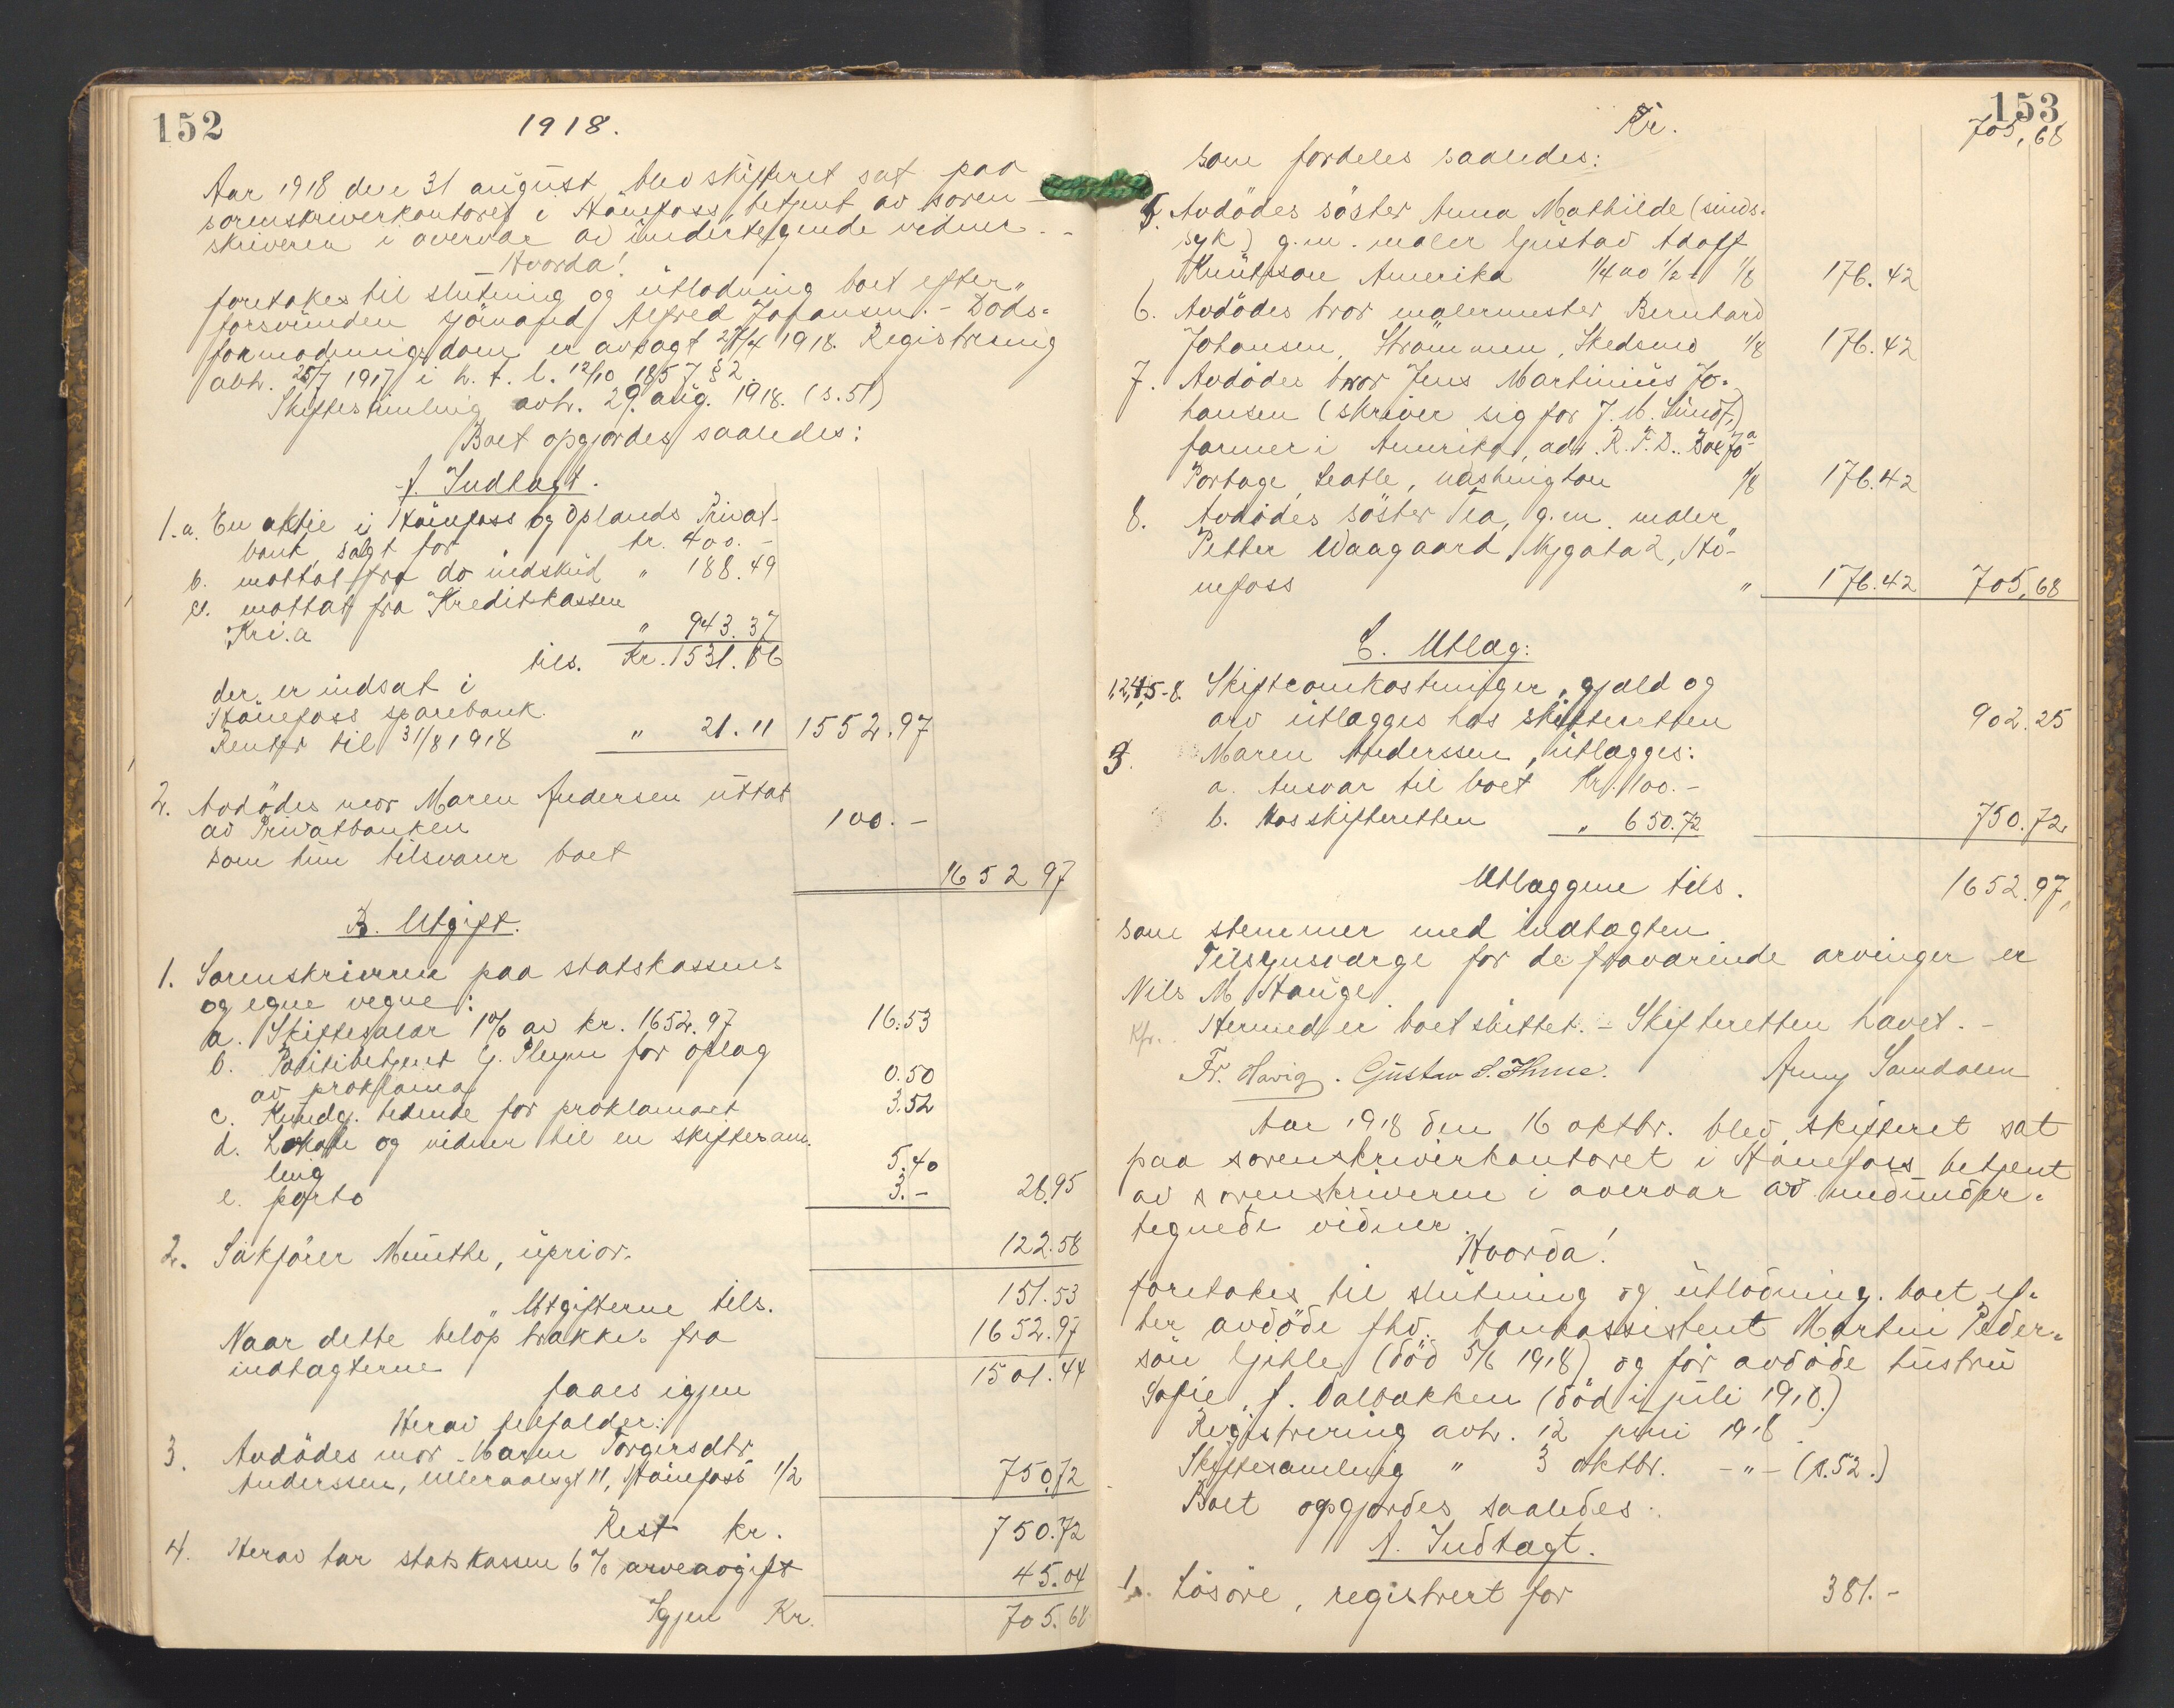 152
1918.
Aar 1918 den 31 august blev skifteret sat paa
sorenskriverkontoret i Hönefoss, betjent av soren-
skriveren i overvær av undertegnede vidner. -
- Hvorda!
foretokes til slutning og utlodning boet efter
forsvunden sjömand Alfred Johansen. - Döds-
formodningsdom er avsagt 27/4 1918. Registrering
avh. 25/7 1917 i h. t. l. 12/10 1857 § 2.
Skiftesamling avh. 29. aug. 1918. (s. 51)
Boet opgjordes saaledes:
A. Indtægt.
1.a. En aktie i Hönefoss og Oplands Privat-
bank, solgt for kr. 400. -
b. mottat fra do indskud " 188.49
c. mottat fra Kreditkassen
Kr.i.a " 943.37
tils. Kr. 1531.86
der er indsat i
Hönefoss sparebank.
Renter til 31/8 1918 " 21.11 1552.97
2. Avdödes mor Maren Andersen uttat
av Privatbanken 100. -
som hun tilsvarer boet
1652 97
B. Utgift.
1. Sorenskriveren paa statskassens
og egne vegne:
a. Skiftesalær 1% av kr. 1652.97 16.53
b. Politibetjent G. Pleym for opslag
av proklama 0.50
c. Kundg. tidende for proklamaet 3.52
d. Lokale og vidner til en skiftesam-
ling 5.40
e. porto 3. - 28.95
2. Sakförer Münthe, uprior. 122.58
" Utgifterne tils. 151.53
Naar dette belöp trækkes fra 1652.97
indtægterne
faaes igjen 1501.44
Herav tilfalder:
3. Avdödes mor Maren Torgersdtr
Anderssen, Ulleraalsgt 11, Hönefoss 1/2 750.72
Rest kr. 750.72
4. Herav tar statskassen 6% arveavgift 45.04
Igjen Kr. 705.68
153
Kr. 705,68
som fordeles saaledes:
5. Avdödes söster Anna Mathilde (sinds-
syk) g.m. maler Gustav Adolf
Knutsson Amerika 1/4 av 1/2 = 1/8 176.42
6. Avdödes bror malermester Bernhard
Johansen, Strömmen, Skedsmo 1/8 176.42
7. Avdödes bror Jens Martinius Jo-
hansen (skriver sig for J. M. Lund),
farmer i Amerika, adr. R. F. D. Box 70 a
Portage, Seatle, Washington 1/8 176.42
8. Avdödes söster Tea, g.m. maler
Petter Waagaard, Nygata 2, Hö-
nefoss " 176.42 705,68
C. Utlæg:
1,2,4,5-8. Skifteomkostninger, gjæld og
arv utlægges hos skifteretten 902.25
3. Maren Anderssen, utlægges:
a. Ansvar til boet Kr. 100. -
b. Hos skifteretten " 650.72 750.72
Utlæggene tils. 1652.97,
som stemmer med indtægten
Tilsynsværge for de fraværende arvinger er
Nils M Hauge.
Kfr. Hermed er boet sluttet. - Skifteretten hævet. -
Fr. Havig. Gustav S. Thue. Amy Samdalen
Aar 1918 den 16 oktbr. blev skifteret sat
paa sorenskriverkontoret i Hönefoss betjent
av sorenskriveren i overvær av medunder-
tegnede vidner.
Hvorda!
foretokes til slutning og utlodning boet ef-
ter avdöde fhv. bankassistent Martin Peder-
sön Gihle (död 5/6 1918) og för avdöde hustru
Sofie, f. Dalbakken (död i juli 1910.)
Registrering avh. 12 juni 1918
Skiftesamling " 3 oktbr. -"- (s. 52.)
Boet opgjordes saaledes:
A. Indtægt.
1. Lösöre, registrert for 381. -